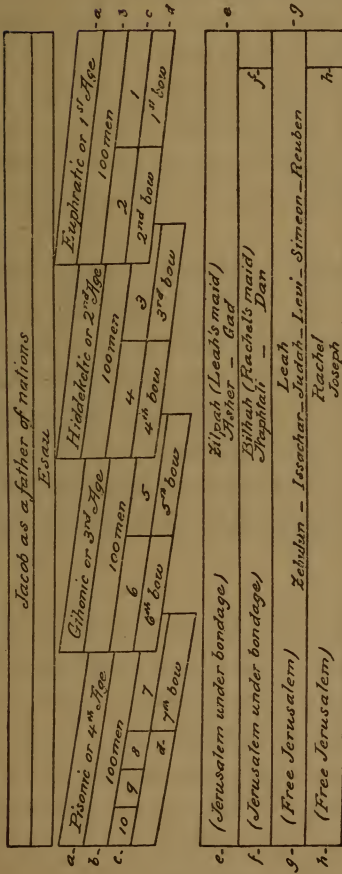 Jacob as a father of nations
Esau
a- Pisonic or 4th Age Gihonic or 3rd Age Hiddekelic or 2nd Age Euphratic or 1st Age -a
b- 100 men 100 men 100 men 100 men -3
c- 10 9 8 7 6 5 4 3 2 1 -c
d- 7th bow 6th bow 5th bow 4th bow 3rd bow 2nd bow 1st bow -d
e- (Jerusalem under bondage) Zilpah (Leah's maid) -e
Asher - Gad
f- (Jerusalem under bondage) Bilhah (Rachel's maid) f-
Naphtali - Dan
g- (Free Jerusalem) Leah -g
Zebulun - Issachar - Judah - Levi - Simeon - Reuben
h- (Free Jerusalem) Rachel h-
Joseph